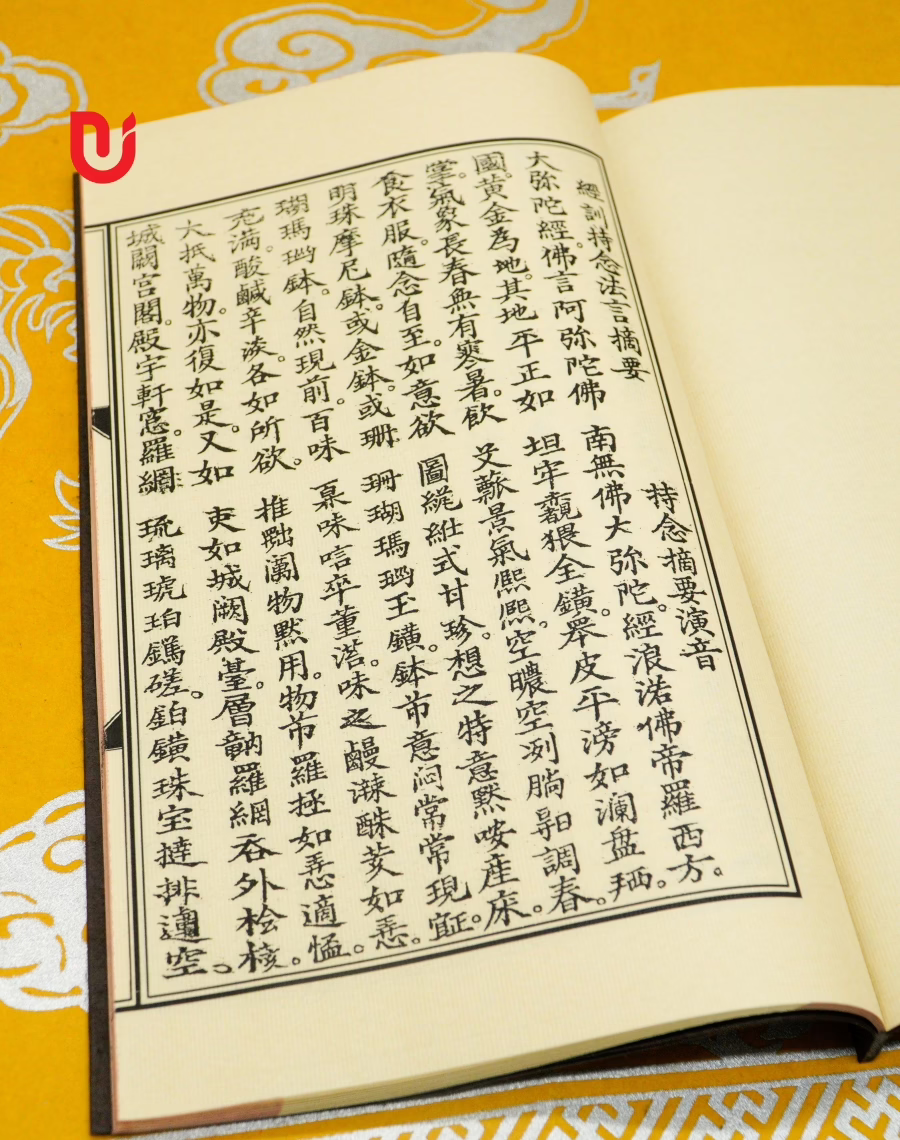 經訓持念法言摘要
大弥陀經。佛言阿弥陀佛
國。黄金為地。其地平正如
掌。氣象長春無有寒暑。飲
食衣服。隨念自至。如意欲
明珠摩尼鉢。或金鉢。或珊
瑚瑪瑙鉢。自然現前。百味
充滿。酸鹹辛淡。各如所欲。
大抵萬物。亦復如是。又如
城闕宫閣。殿宇軒窓。羅網
持念摘要演音
南無佛大弥陀。經浪渃佛帝羅西方。
坦牢猥全鐄。皮平滂如瀾盘
景氣熙熙。空空洌調春。
圖式甘珍。想之特意默咹産床。
珊瑚瑪瑙玉鐄。鉢帀意悶常常現
味味之如
推物默用。物帀羅拯如適
吏如城闕殿臺。層羅網吞外桧
琉璃琥珀磋。鉑鐄珠宝撻排空。